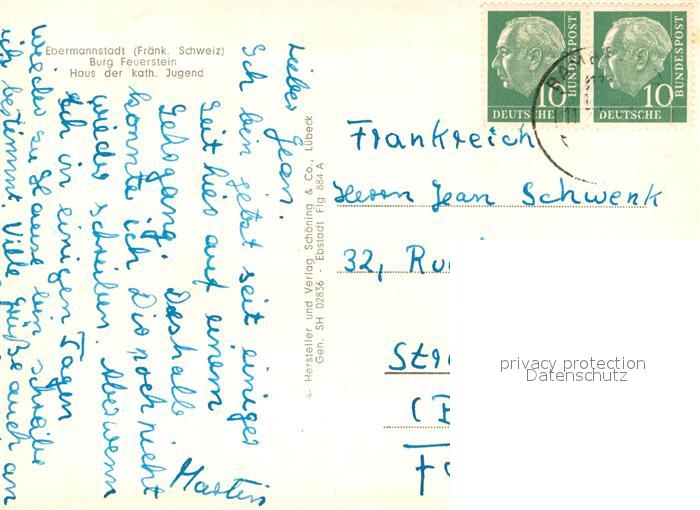 Ebermannstadt (Fränk. Schweiz)
Burg Feuerstein
Haus der kath. Jugend
Lieber Jean.
Ich bin jetzt seit einiger
Zeit hier auf einem
Lehrgang. Deshalb
konnte ich Dir noch nicht
wieder schreiben. Aber wenn
ich in einigen Tagen
wieder zu Hause bin schreibe
ich bestimmt. Viele Grüße auch an
Martin
Hersteller und Verlag Schöning & Co., Lübeck
Gen. SH 02836 - Ebstadt Flg 884 A
10
DEUTSCHE
BUNDESPOST
10
DEUTSCHE
BUNDESPOST
Frankreich
Herrn Jean Schwenk
32, Ru
Str
privacy protection
Datenschutz